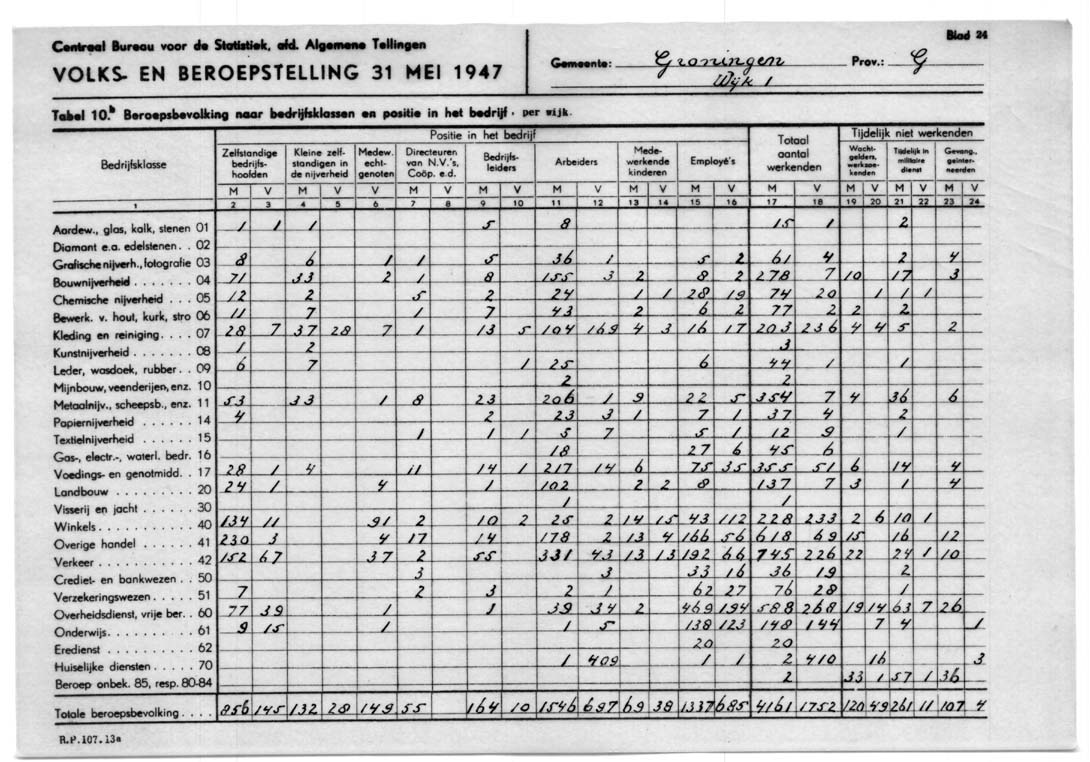 Blad 24
Centraal Bureau voor de Statistiek, afd. Algemene Tellingen
VOLKS- EN BEROEPSTELLING 31 MEI 1947
Gemeente: Groningen Prov.: G
Wijk 1
Tabel 10.b Beroepsbevolking naar bedrijfsklassen en positie in het bedrijf, per wijk.
Bedrijfsklasse
Positie in het bedrijf
Zelfstandige bedrijfs-hoofden
Kleine zelf-standigen in de nijverheid
Medew. echt-genoten
Directeuren van N.V.'s, Coöp. e.d.
Bedrijfs-leiders
Arbeiders
Mede-werkende kinderen
Employé's
Totaal aantal werkenden
Tijdelijk niet werkenden
Wacht-gelders, werkzoe-kenden
Tijdelijk in militaire dienst
Gevang., geinter-neerden
M V M V V M V M V M V M V M V M V M V M V M V
1 2 3 4 5 6 7 8 9 10 11 12 13 14 15 16 17 18 19 20 21 22 23 24
Aardew., glas, kalk, stenen 01 1 1 1 5 8 15 1 2
Diamant e.a. edelstenen. . 02
Grafische nijverh., fotografie 03 8 6 1 1 5 36 1 5 2 61 4 2 4
Bouwnijverheid . . . . . . . 04 71 33 2 1 8 155 3 2 8 2 278 7 10 17 3
Chemische nijverheid . . . 05 12 2 5 2 24 1 1 28 19 74 20 1 1 1
Bewerk. v. hout, kurk, stro 06 11 7 1 7 43 2 6 2 77 2 2 2
Kleding en reiniging. . . . 07 28 7 37 28 7 1 13 5 104 169 4 3 16 17 203 236 4 4 5 2
Kunstnijverheid . . . . . . . 08 1 2 3
Leder, wasdoek, rubber. . 09 6 7 1 25 6 44 1 1
Mijnbouw, veenderijen, enz. 10 2 2
Metaalnijv., scheepsb., enz. 11 53 33 1 8 23 206 1 9 22 5 354 7 4 36 6
Papiernijverheid . . . . . . 14 4 2 23 3 1 7 1 37 4 2
Textielnijverheid . . . . . . 15 1 1 1 5 7 5 1 12 9 1
Gas-, electr.-, waterl. bedr. 16 18 27 6 45 6
Voedings- en genotmidd. . 17 28 1 4 11 14 1 217 14 6 75 35 355 51 6 14 4
Landbouw . . . . . . . . . 20 24 1 4 1 102 2 2 8 137 7 3 1 4
Visserij en jacht . . . . . . 30 1 1
Winkels . . . . . . . . . . . 40 134 11 91 2 10 2 25 2 14 15 43 112 228 233 2 6 10 1
Overige handel . . . . . . 41 230 3 4 17 14 178 2 13 4 166 56 618 69 15 16 12
Verkeer . . . . . . . . . . . 42 152 67 37 2 55 331 43 13 13 192 66 745 226 22 24 1 10
Crediet- en bankwezen . . 50 3 3 33 16 36 19 2
Verzekeringswezen . . . . . 51 7 2 3 2 1 62 27 76 28 1
Overheidsdienst, vrije ber. . 60 77 39 1 1 39 34 2 469 194 588 268 19 14 63 7 26
Onderwijs. . . . . . . . . . 61 9 15 1 1 5 138 123 148 144 7 4 1
Eredienst . . . . . . . . . . 62 20 20
Huiselijke diensten . . . . . 70 1 409 1 1 2 410 16 3
Beroep onbek. 85, resp. 80-84 2 33 1 57 1 36
Totale beroepsbevolking . . . . 856 145 132 28 149 55 164 10 1546 697 69 38 1337 685 4161 1752 120 49 261 11 107 4
R.P.107.13a